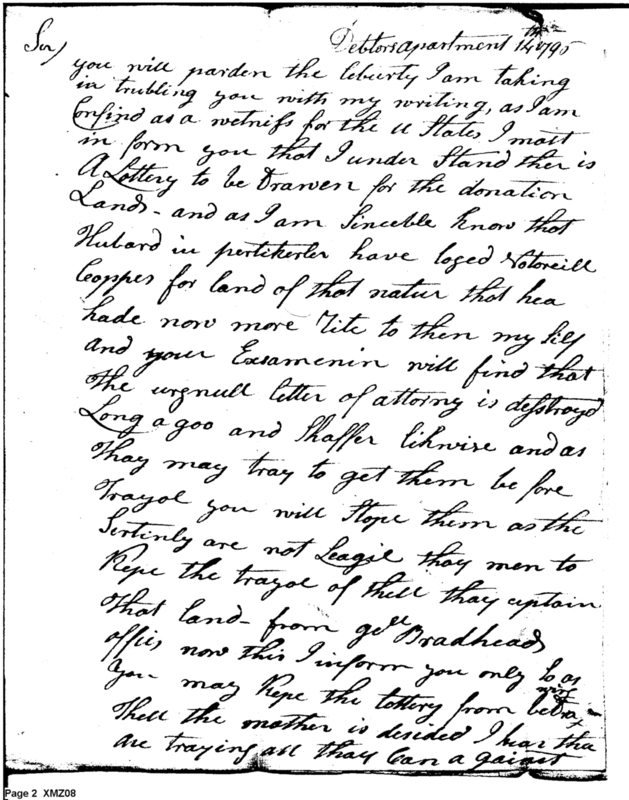 Debtors apartment 14th 1795
Sir,
you will parden the leburty I am taking
in trubling you with my writing, as I am
Confind as a wetness for the U States I most
in form you that I under Stand ther is
A Lottery to be Drawen for the donation
Lands - and as I am Sinceble know that
Hubard in pertikerler have loged Notoreill
Coppes for land of that natur that hea
hade now more Tite to then my Self
and your Exsamenin will find that
the urgnull letter of attorny is desstroyd
Long a goo and Shaffer likwise and as
thay may tray to get them be fore
Trayol you will Stope them as the
Sertinly are not Leagil thay men to
Kepe the trayol of thell thay captain
That land - from gell Bradheads
offies now this I inform you only so as
you may Kepe the lottery from be
Thell the mather is desided I hear tha
are traying all thay Can a gainst
Page 2 XMZ08